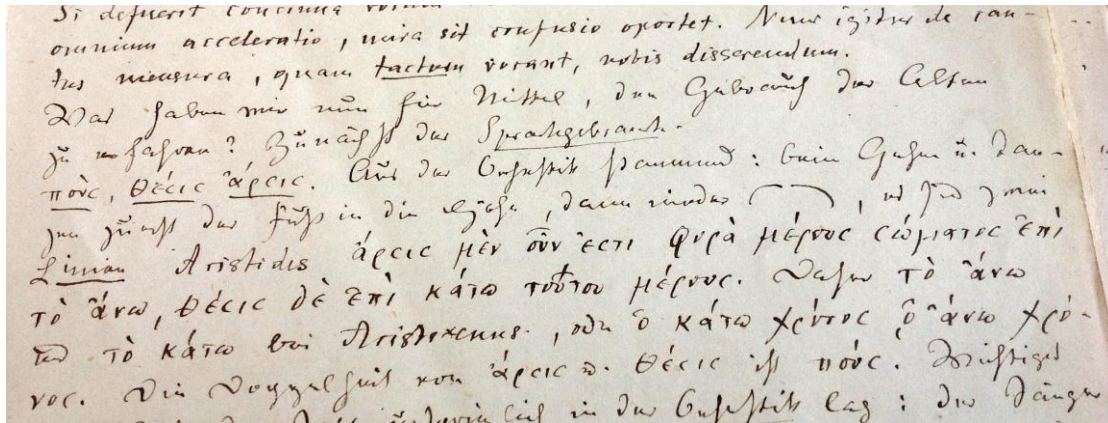 Si defuerit concinna
omnium acceleratio, mira sit confusio oportet. Nunc igitur de can-
tus mensura, quam tactum vocant, nobis disserendum.
Was haben wir nun für Mittel, den Gebrauch der Alten
zu erfahren? Zunächst der Sprachgebrauch.
πούϲ, θέϲιϲ ἄρϲιϲ. Aus der Orchestik stammend: beim Gehen u. Tan-
zen zuerst der Fuß in die Höhe, dann nieder, es sind zwei
Linien Aristides ἄρϲιϲ μὲν οὖν ἐϲτι φορὰ μέρουϲ ϲώματοϲ ἐπὶ
τὸ ἄνω, θέϲιϲ δὲ ἐπὶ κάτω μέρουϲ. Daher τὸ ἄνω
und τὸ κάτω bei Aristoxenus, oder ὁ κάτω χρόνοϲ ὁ ἄνω χρό-
νοϲ. Die Doppelheit von ἄρϲιϲ u. θέϲιϲ ist πούϲ. Wichtiges
in der Orchestik lag: der Tänzer